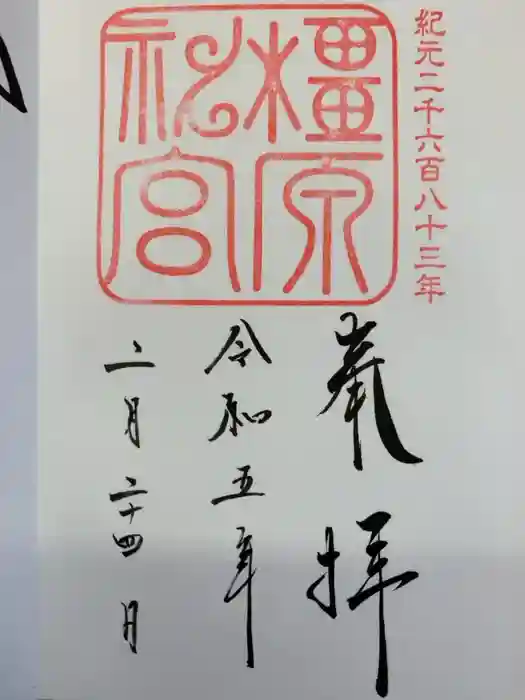 紀元二千六百八十三年
橿原
神宮
奉拝
令和五年
二月二十四日